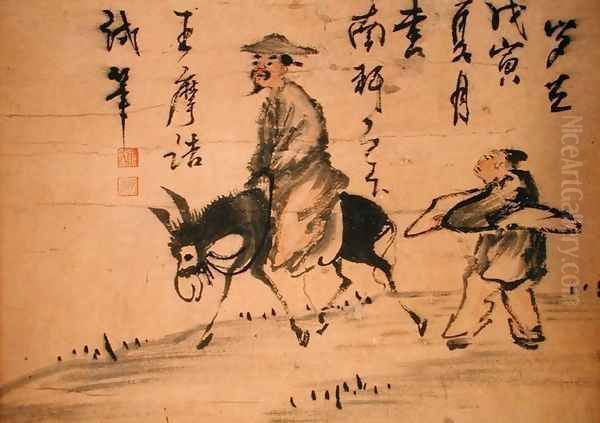 歲在
戊寅
夏月
書
南軒
王摩詰
試筆
NiceArtGallery.com